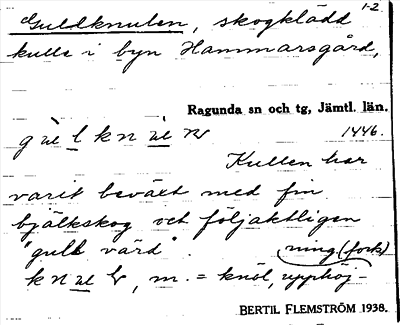 1-2.
Guldknulen, skogklädd
kulle i byn Hammarsgård,
Ragunda sn och tg, Jämtl. län.
1446.
Kullen har
varit beväxt med fin
bjälkskog och följaktligen
"gull värd".
ning (fork)
m. = knöl, upphöj-
BERTIL FLEMSTRÖM 1938.